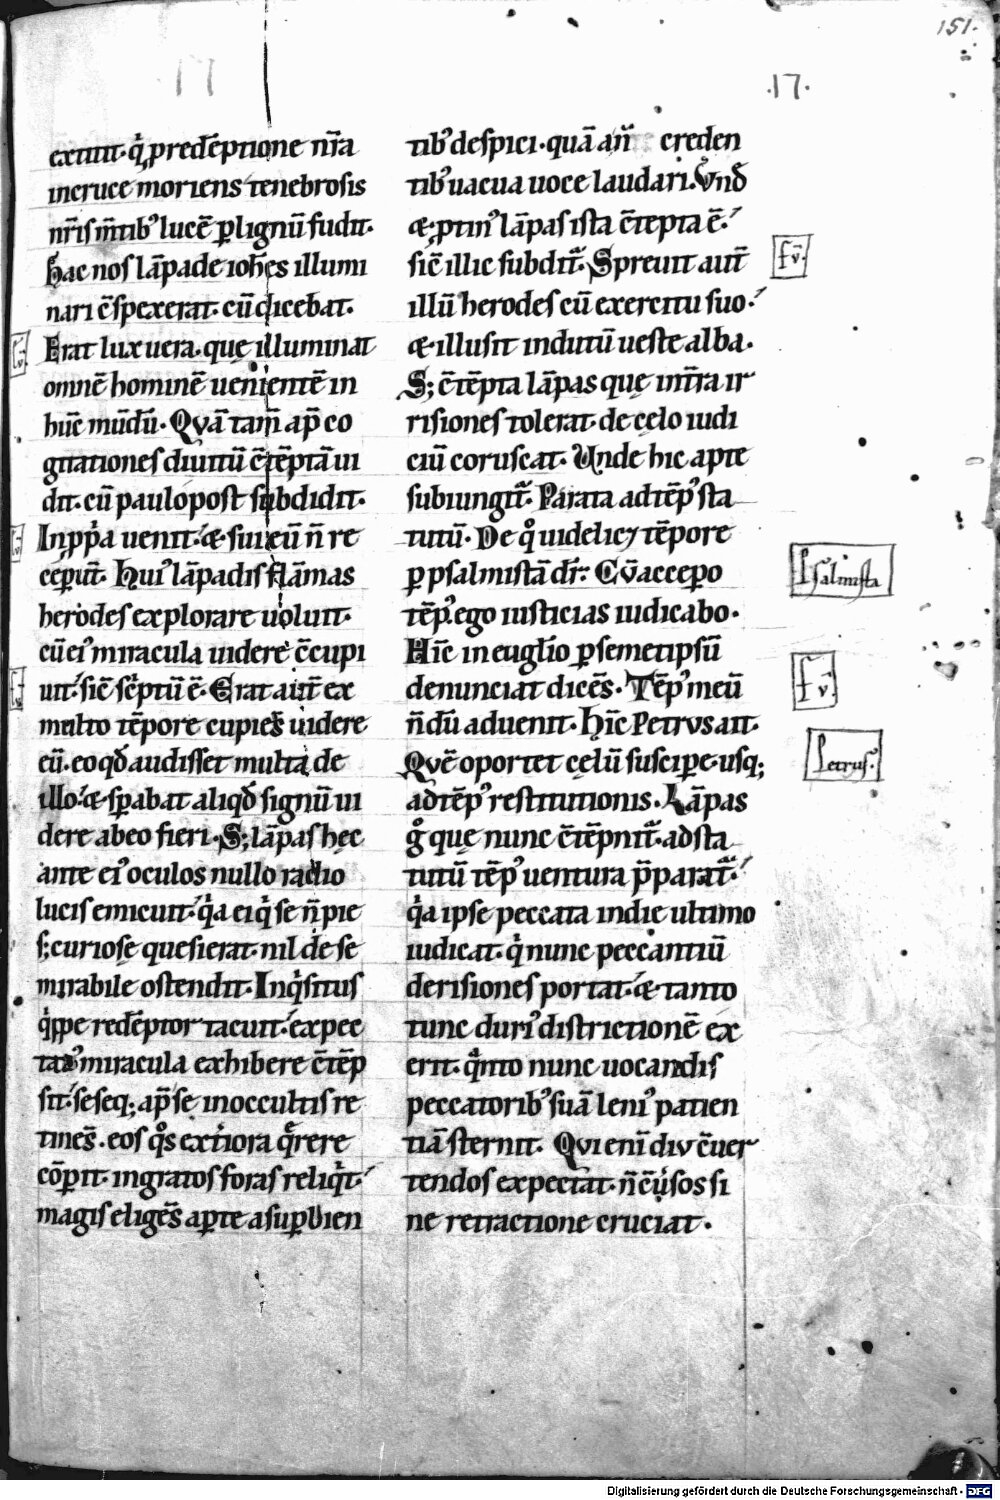 151.
17
.17.
extitit· q̇ p redēptione nr̄a
in cruce moriens tenebrosis
nr̄is m̄tib᾽ lucē p lignū fudit·
Hac nos lāpade ioh̄es illumi
nari c̄spexerat· cū dicebat·
Erat lux uera· quę illuminat
omnē hominē uenientē in
hūc mūdū· Quā tam̄ ap̄ co
gitationes diuitū c̄tēptā ui
dit· cū paulo post subdidit·
In pp̄a uenit· & sui eū n̄ re
ceper̄t· Hui᾽ lāpadis flāmas
herodes explorare uoluit·
cū ei᾽ miracula uidere c̄cupi
uit· sic̄ sc̄ptū ē· Erat aut̄ ex
multo tēpore cupies̄ uidere
eū· eo qd̄ audisset multa de
illo· & spabat aliqd̄ signū ui
dere ab eo fieri· S; lāpas hęc
ante ei᾽ oculos nullo radio
lucis emicuit· q̇a ei q̇ se n̄ pie
s; curiose quesierat· nil de se
mirabile ostendit· Inq̇situs
q̇ppe redēptor tacuit· expec
tat᾽ miracula exhibere c̄tēp
sit· seseq; ap̄ se in occultis re
tines̄· eos q̊s exteriora q̄rere
cōperit· ingratos foras reliq̇t·
magis eliges̄ aperte a supbien
tib᾽ despici· quā a n̄ creden
tib᾽ uacua uoce laudari. Vnd̄
& ptin᾽ lāpas ista c̄tēpta ē·
sic̄ illic subdit᷑· Spreuit aut̄
illū herodes cū exercitu suo·
& illusit indutū ueste alba·
S; c̄tēpta lāpas quę int̄ra ir
risiones tolerat· de cęlo iudi
ciū coruscat· Unde hic apte
subiungit᷑· Parata ad tēp᾽ sta
tutū· De q̊ uidelicꝫ tēpore
p psalmistā dr̄· Cū accepo
tēp᾽ ego iusticias iudicabo·
Hīc in euglīo p semetipsū
denunciat dicēs· Tēp᾽ meū
n̄dū aduenit· Hīc Petrvs ait·
Quē oportet cęlū suscipe· usq;
ad tēp᾽ restitutionis· Lāpas
g̊ quę nunc c̄tēpnit᷑· ad sta
tutū tēp᾽ uentura p̄parat᷑·
q̇a ipse peccata in die ultimo
iudicat· q̇ nunc peccantiū
derisiones portat· & tanto
tunc duri᾽ districtionē ex
erit· q̄nto nunc uocandis
peccatorib᾽ suā leni᾽ patien
tiā sternit· Qui enī diu c̄uer
tendos expectat· n̄ c̄ù̇sos si
ne retractione cruciat·
Psalmista
Petrus·
Digitalisierung gefördert durch die Deutsche Forschungsgemeinschaft · DFG